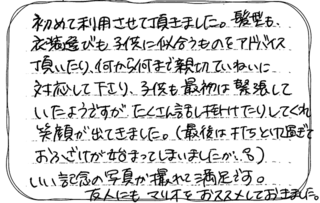 初めて利用させて頂きました。髪型も、
衣装選びも子供に似合うものをアドバイス
頂いたり、何から何まで親切ていねいに
対応して下さり、子供も最初は緊張して
いたようですが、たくさん話し掛けたりしてくれ
笑顔が出てきました。(最後は打ちとけ過ぎて
おふざけが始まってしまいましたが。)
いい記念の写真が撮れて満足です。
友人にもマリオをおススメしておきました。